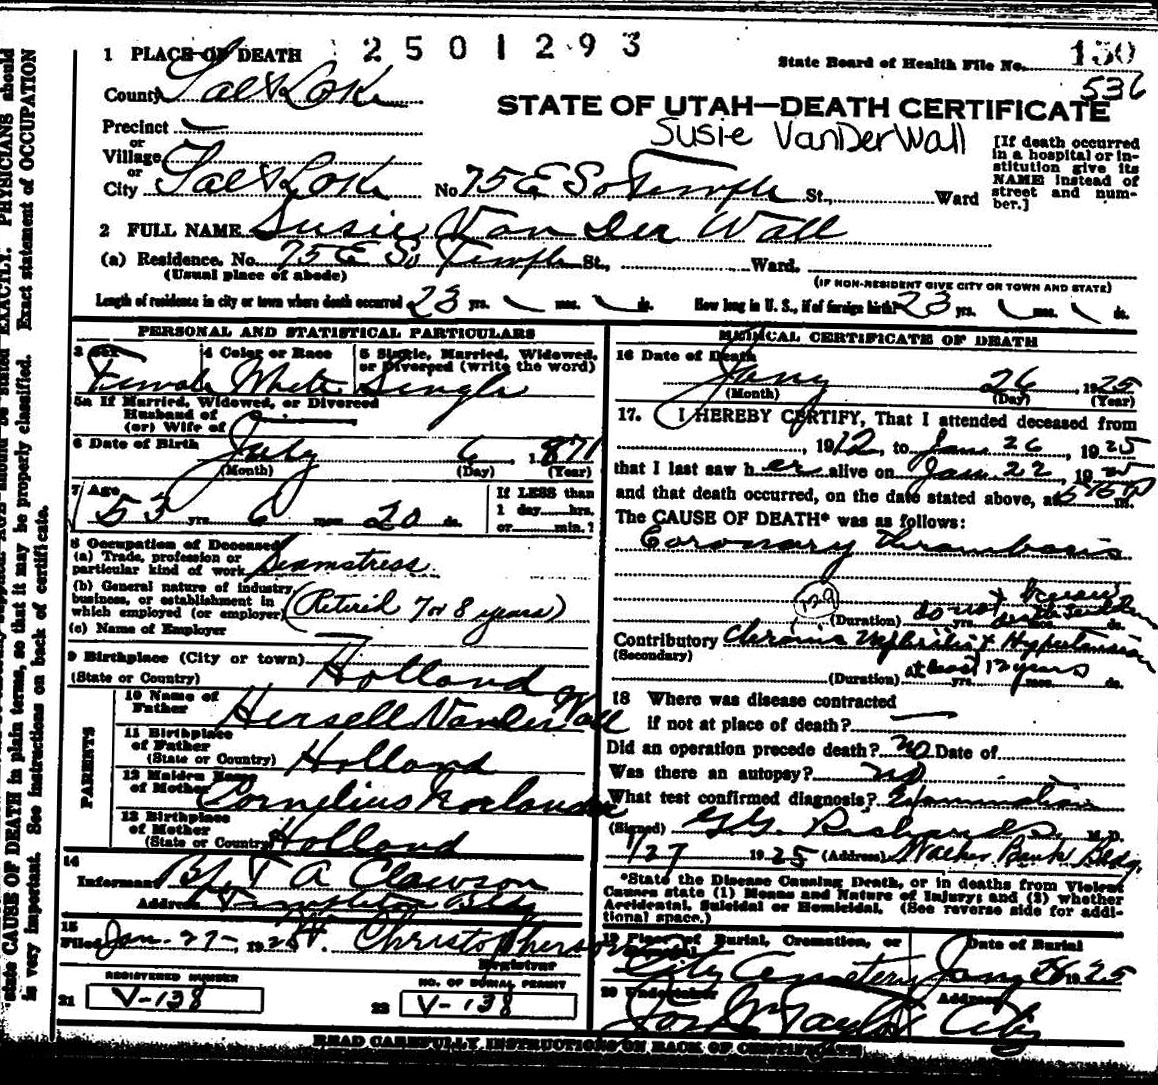 2501293
1 PLACE OF DEATH
State Board of Health File No. 130
536
County Salt Lake
STATE OF UTAH—DEATH CERTIFICATE
Susie VanDerWall
Precinct
or
Village
or
City Salt Lake No. 75 E So Temple St., Ward
[If death occurred
in a hospital or in-
stitution give its
NAME instead of
street and num-
ber.]
2 FULL NAME Susie Van Der Wall
(a) Residence. No. 75 E So Temple St., Ward.
(Usual place of abode)
(IF NON-RESIDENT GIVE CITY OR TOWN AND STATE)
Length of residence in city or town where death occurred 23 yrs. mos. ds. How long in U. S., if of foreign birth? 23 yrs. mos. ds.
PERSONAL AND STATISTICAL PARTICULARS
3 Sex 4 Color or Race 5 Single, Married, Widowed,
or Divorced (write the word)
Female White Single
5a If Married, Widowed, or Divorced
Husband of
(or) Wife of
6 Date of Birth July 6, 1871
(Month) (Day) (Year)
7 Age
53 yrs. 6 mos. 20 ds.
If LESS than
1 day hrs.
or min.?
8 Occupation of Deceased
(a) Trade, profession or
particular kind of work Seamstress
(b) General nature of industry,
business, or establishment in
which employed (or employer) (Retired 7 or 8 years)
(c) Name of Employer
9 Birthplace (City or town)
(State or Country) Holland
PARENTS
10 Name of
Father Hersell VanDer Wall
11 Birthplace
of Father
(State or Country) Holland
12 Maiden Name
of Mother Cornelius
13 Birthplace
of Mother
(State or Country) Holland
14
Informant By T A Clawson
Address Templeton Bldg
15
Filed Jan. 27- 1925 H. Christopherson
Registrar
REGISTERED NUMBER
21 V-138
NO. OF BURIAL PERMIT
22 V-138
MEDICAL CERTIFICATE OF DEATH
16 Date of Death
Jany 26, 1925
(Month) (Day) (Year)
17. I HEREBY CERTIFY, That I attended deceased from
1912, to Jan 26, 1925
that I last saw her alive on Jan 22, 1925
and that death occurred, on the date stated above, at 5 15 P m.
The CAUSE OF DEATH* was as follows:
Coronary Thrombosis
129
(Duration) do not know yrs. mos. ds.
Contributory Chronic Nephritis & Hypertension
(Secondary)
(Duration) at least 12 years yrs. mos. ds.
18 Where was disease contracted
if not at place of death?
Did an operation precede death? no Date of
Was there an autopsy? no
What test confirmed diagnosis? Examination
(Signed) G. G. Richards M. D.
1/27 1925 (Address) Walker Bank Bldg.
*State the Disease Causing Death, or in deaths from Violent
Causes state (1) Means and Nature of Injury; and (2) whether
Accidental, Suicidal or Homicidal. (See reverse side for addi-
tional space.)
19 Place of Burial, Cremation, or Date of Burial
City Cemetery Jany 1925
20 Undertaker Address
Jos Wm Taylor City
READ CAREFULLY INSTRUCTIONS ON BACK OF CERTIFICATE
EXACTLY. PHYSICIANS should
state CAUSE OF DEATH in plain terms, so that it may be properly classified. Exact statement of OCCUPATION
is very important. See instructions on back of certificate.